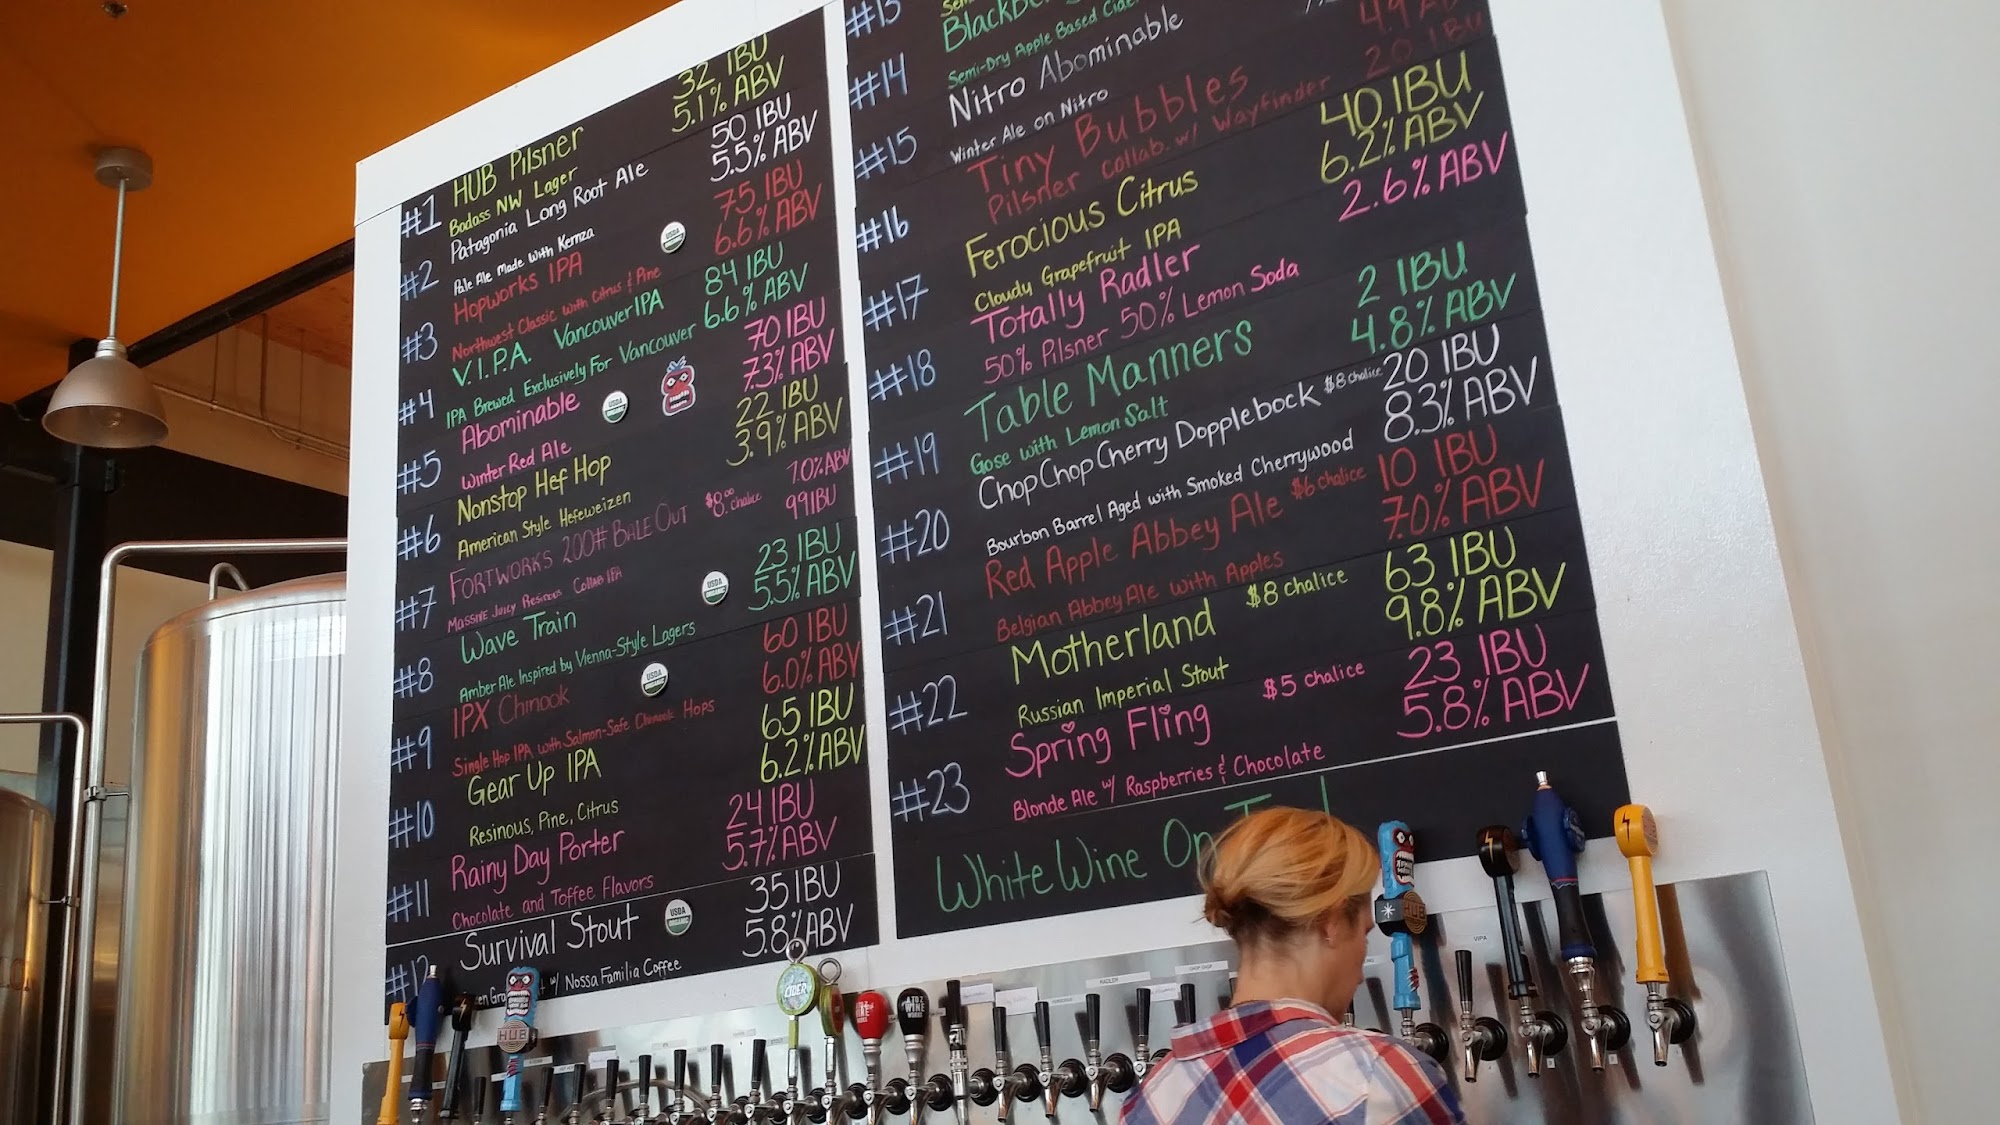 32 IBU
#1 HUB Pilsner 5.1% ABV
Badass NW Lager
50 IBU
#2 Patagonia Long Root Ale 5.5% ABV
Pale Ale Made With Kernza
75 IBU
#3 Hopworks IPA USDA ORGANIC 6.6% ABV
Northwest Classic with Citrus & Pine
84 IBU
#4 V.I.P.A. Vancouver IPA 6.6% ABV
IPA Brewed Exclusively For Vancouver
70 IBU
#5 Abominable USDA ORGANIC 7.3% ABV
Winter Red Ale
22 IBU
#6 Nonstop Hef Hop 3.9% ABV
American Style Hefeweizen
7.0% ABV
#7 Fortworks 200# Bale Out $8.00 chalice 99 IBU
Massive Juicy Resinous Collab IPA
23 IBU
#8 Wave Train USDA ORGANIC 5.5% ABV
Amber Ale Inspired by Vienna-Style Lagers
60 IBU
#9 IPX Chinook USDA ORGANIC 6.0% ABV
Single Hop IPA with Salmon-Safe Chinook Hops
65 IBU
#10 Gear Up IPA 6.2% ABV
Resinous, Pine, Citrus
24 IBU
#11 Rainy Day Porter 5.7% ABV
Chocolate and Toffee Flavors
35 IBU
#12 Survival Stout USDA ORGANIC 5.8% ABV
w/ Nossa Familia Coffee
#13
Semi-Dry Apple Based Cider
#14 Nitro Abominable
Winter Ale on Nitro
4.9
#15 Tiny Bubbles 20 IBU
Pilsner Collab. w/ Wayfinder
40 IBU
#16 Ferocious Citrus 6.2% ABV
Cloudy Grapefruit IPA
#17 Totally Radler 2.6% ABV
50% Pilsner 50% Lemon Soda
2 IBU
#18 Table Manners 4.8% ABV
Gose with Lemon Salt
20 IBU
#19 Chop Chop Cherry Dopplebock $8 chalice 8.3% ABV
Bourbon Barrel Aged with Smoked Cherrywood
10 IBU
#20 Red Apple Abbey Ale $6 chalice 7.0% ABV
Belgian Abbey Ale with Apples
63 IBU
#21 Motherland $8 chalice 9.8% ABV
Russian Imperial Stout
23 IBU
#22 Spring Fling $5 chalice 5.8% ABV
Blonde Ale w/ Raspberries & Chocolate
#23 White Wine On
CIDER
A TO Z WINE WORKS
HUB
HUB
RADLER
CHOP CHOP
VIPA